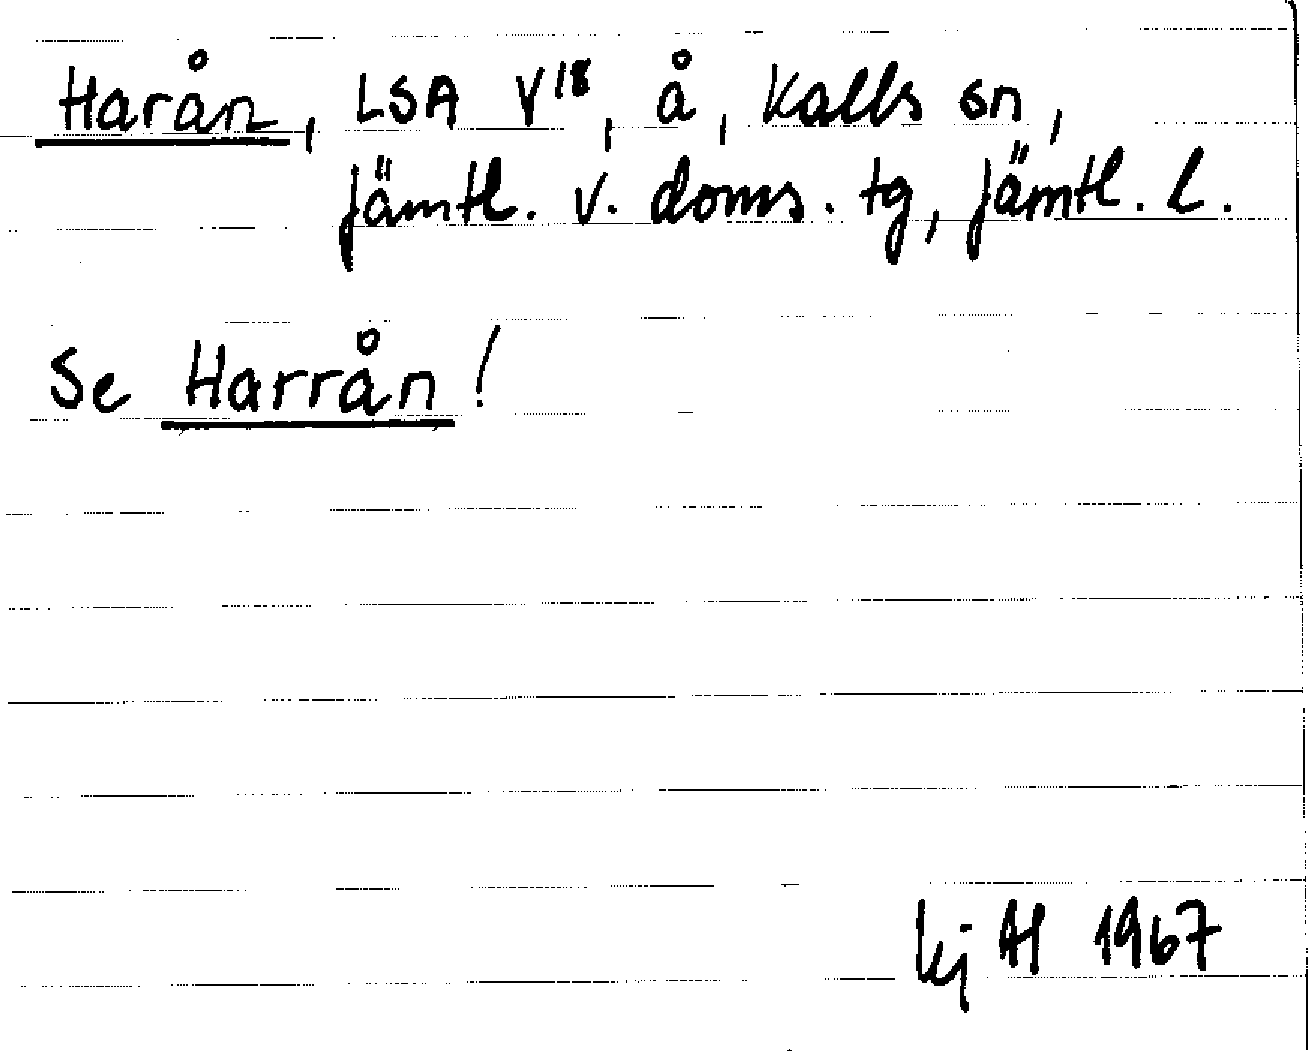 Harån, LSA V18, å, Kalls sn,
Jämtl. v. doms. tg, Jämtl. l.
Se Harrån!
kj AH 1967